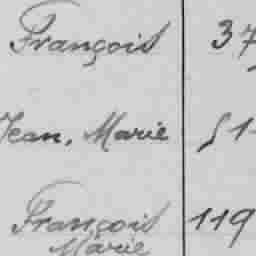 François 37
Jean, Marie 51
François 119
Marie